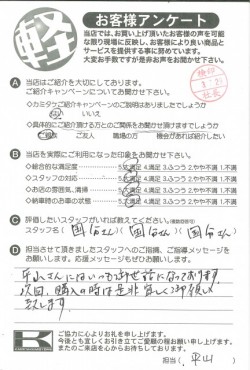 軽
お客様アンケート
当店では、お買い上げ頂いたお客様の声を可能
な限り現場に反映し、お客様により良い商品と
サービスを提供する事に努めています。
大変お手数ですが是非お声をお聞かせ下さい。
A 当店はご紹介を大切にしております。
ご紹介キャンペーンについてお聞かせ下さい。
◇カミタケご紹介キャンペーンのご説明はありましたでしょうか
はい いいえ
◇具体的にご紹介頂ける方とのご関係をお聞かせ頂けますでしょうか
ご親族 ご友人 職場の方 機会があれば紹介したい
B 当店を実際にご利用になった印象をお聞かせ下さい。
◇総合的な満足度 5.大満足 4.満足 3.ふつう 2.やや不満 1.不満
◇スタッフの対応 5.大満足 4.満足 3.ふつう 2.やや不満 1.不満
◇お店の雰囲気、清掃 5.大満足 4.満足 3.ふつう 2.やや不満 1.不満
◇納車時のお車の状態 5.大満足 4.満足 3.ふつう 2.やや不満 1.不満
C 評価したいスタッフがいれば教えてください。(複数回答可)
スタッフ名( 国分さん )( 国分さん )( 国分さん )
D 担当させて頂きましたスタッフへのご指摘、ご指導メッセージを
お願いします。応援メッセージもぜひお願いします。
平山さんにはいつもお世話になっております
次回、購入の時は是非宜しく御願い
致します。
K
ご協力に心よりお礼を申し上げます。
今後とも宜しくお引き立てご愛顧の程お願い申し上げます。
またのご来店を心からお待ちしております。
担当( 平山 )